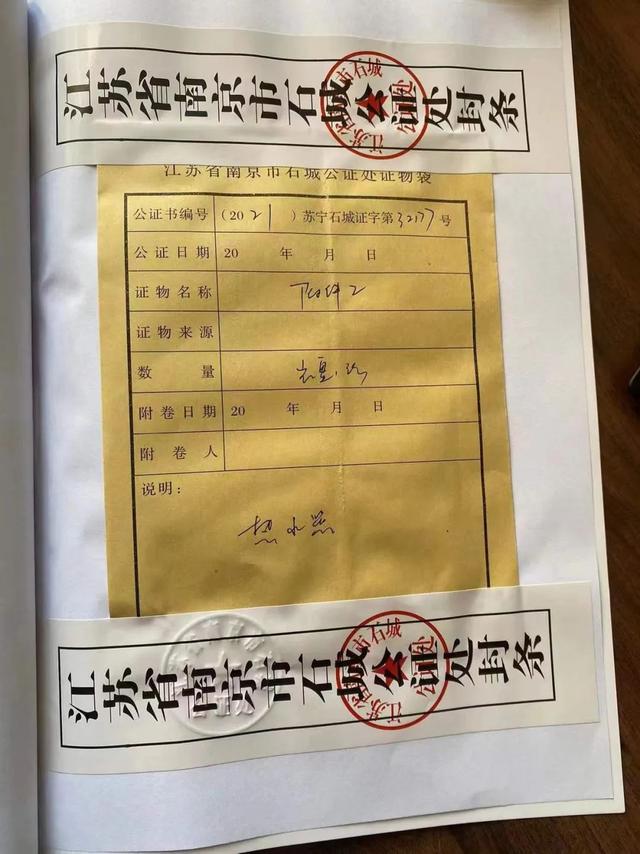 江苏省南京市石城公证处封条
江苏省南京市石城公证处证物袋
公证书编号 (2021) 苏宁石城证字第32177号
公证日期 20 年 月 日
证物名称
证物来源
数量
附卷日期 20 年 月 日
附卷人
说明：
热水器
江苏省南京市石城公证处封条